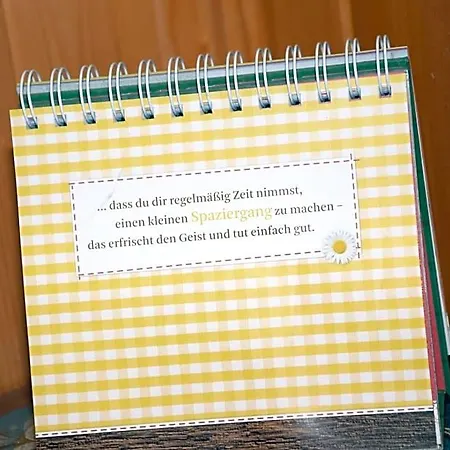 ... dass du dir regelmäßig Zeit nimmst,
einen kleinen Spaziergang zu machen –
das erfrischt den Geist und tut einfach gut.